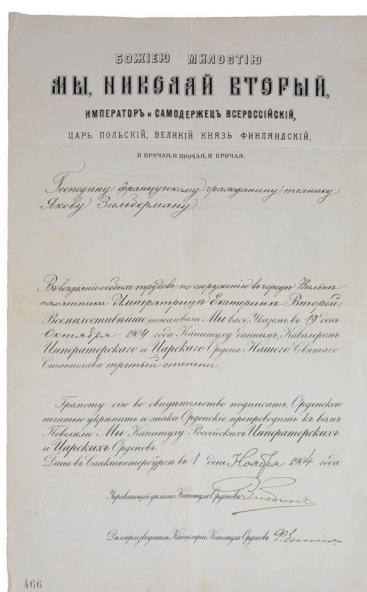 БОЖІЕЮ МИЛОСТІЮ
МЫ, НИКОЛАЙ ВТОРЫЙ,
ИМПЕРАТОРЪ и САМОДЕРЖЕЦЪ ВСЕРОССІЙСКІЙ,
ЦАРЬ ПОЛЬСКІЙ, ВЕЛИКІЙ КНЯЗЬ ФИНЛЯНДСКІЙ,
И ПРОЧАЯ, И ПРОЧАЯ, И ПРОЧАЯ.
Господину французскому гражданину технику
Якову Зильберману.
Въ воздаяніе особыхъ трудовъ по сооруженію въ городѣ Вильнѣ
памятника Императрицѣ Екатеринѣ Второй,
Всемилостивѣйше пожаловали Мы васъ Указомъ въ 19 день
Октября 1904 года Капитулу даннымъ, Кавалеромъ
Императорскаго и Царскаго Ордена Нашего Святаго
Станислава третьей степени.
Грамоту сію во свидѣтельство подписать, Орденскою
печатью укрѣпить и знаки Орденскіе препроводить къ вамъ
Повелѣли Мы Капитулу Россійскихъ Императорскихъ
и Царскихъ Орденовъ.
Дана въ Санктпетербургѣ въ 1 день Ноября 1904 года.
Управляющій дѣлами Капитула Орденовъ
Дѣлопроизводитель Канцеляріи Капитула Орденовъ
466